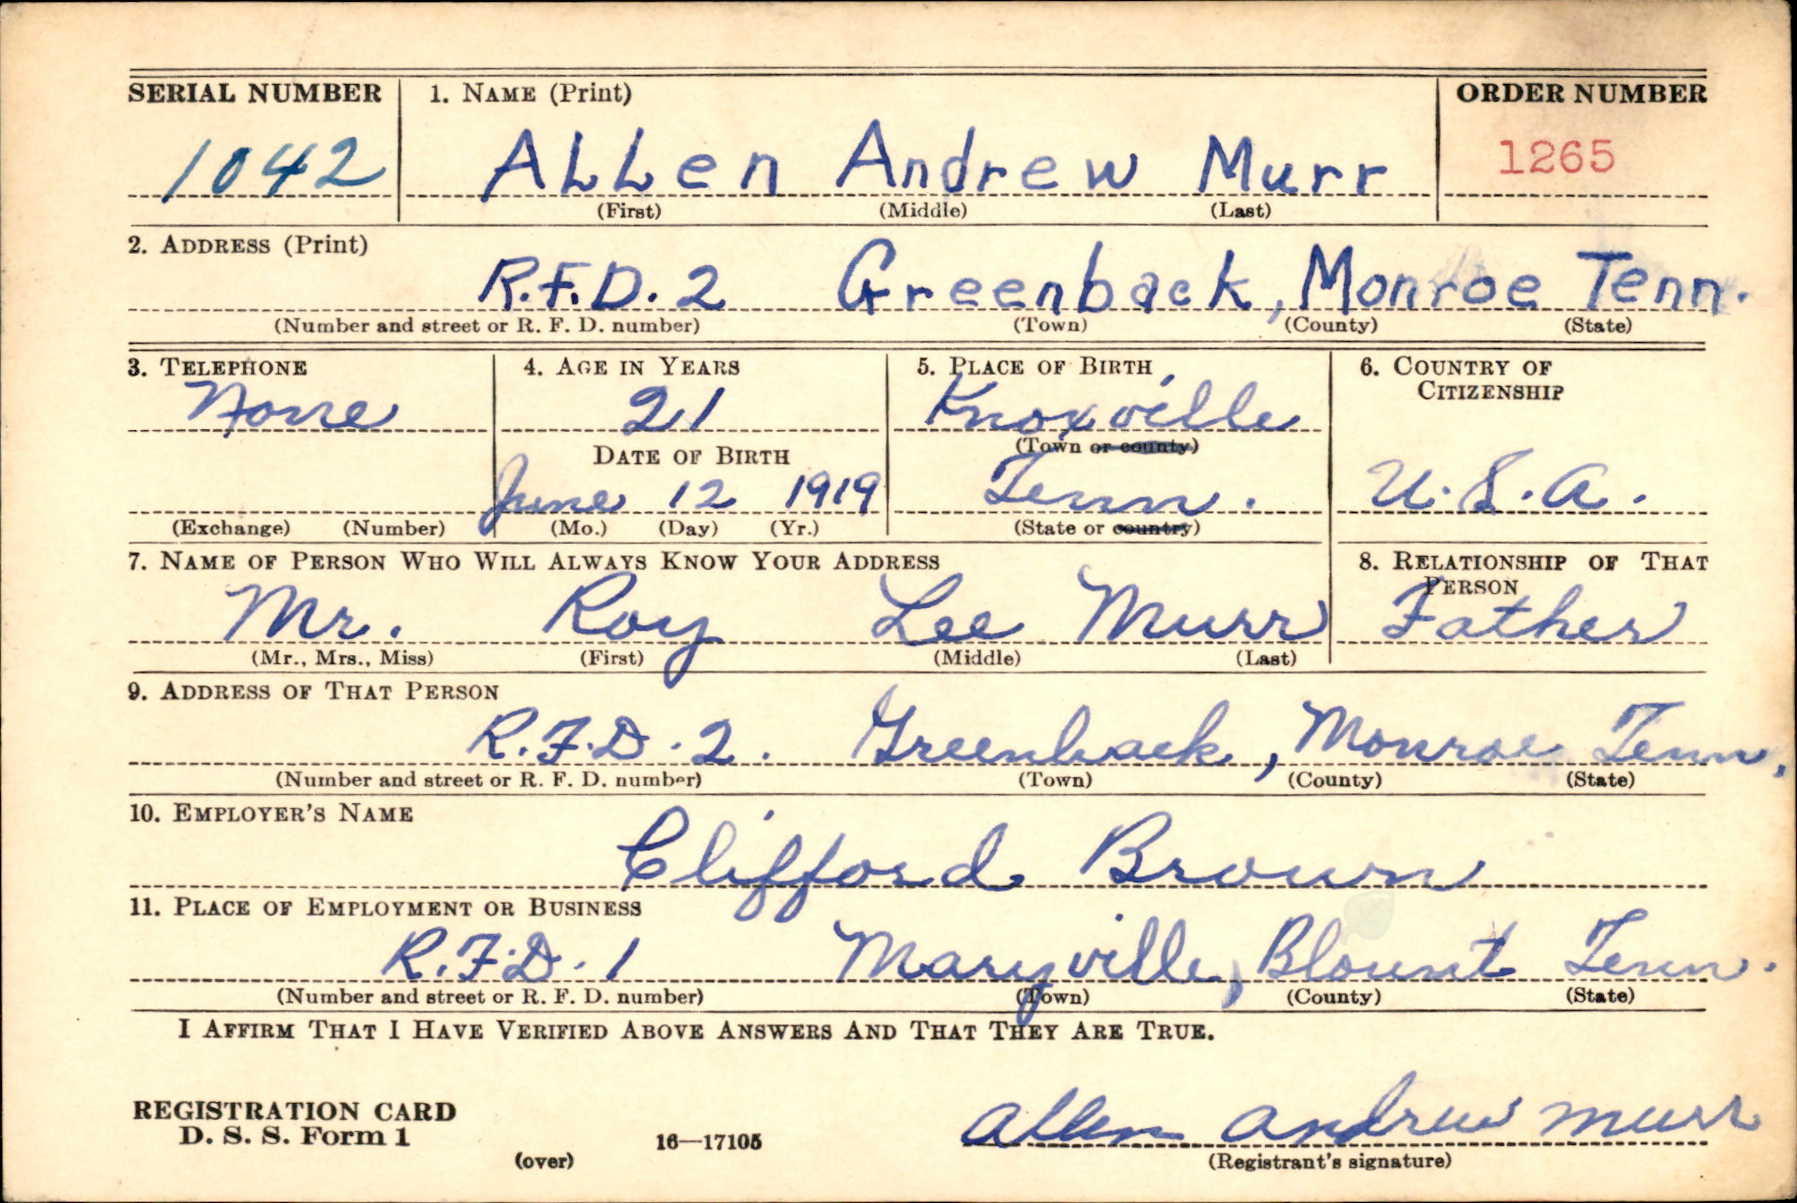 SERIAL NUMBER 1. NAME (Print) ORDER NUMBER
1042 ALLen Andrew Murr 1265
(First) (Middle) (Last)
2. ADDRESS (Print)
R.F.D. 2 Greenback, Monroe Tenn.
(Number and street or R. F. D. number) (Town) (County) (State)
3. TELEPHONE 4. AGE IN YEARS 5. PLACE OF BIRTH 6. COUNTRY OF CITIZENSHIP
None 21 Knoxville
(Town or county)
DATE OF BIRTH
June 12 1919 Tenn. U.S.A.
(Exchange) (Number) (Mo.) (Day) (Yr.) (State or country)
7. NAME OF PERSON WHO WILL ALWAYS KNOW YOUR ADDRESS 8. RELATIONSHIP OF THAT PERSON
Mr. Roy Lee Murr Father
(Mr., Mrs., Miss) (First) (Middle) (Last)
9. ADDRESS OF THAT PERSON
R.F.D. 2. Greenback, Monroe Tenn.
(Number and street or R. F. D. number) (Town) (County) (State)
10. EMPLOYER'S NAME
Clifford Brown
11. PLACE OF EMPLOYMENT OR BUSINESS
R.F.D. 1 Maryville, Blount Tenn.
(Number and street or R. F. D. number) (Town) (County) (State)
I AFFIRM THAT I HAVE VERIFIED ABOVE ANSWERS AND THAT THEY ARE TRUE.
REGISTRATION CARD
D. S. S. Form 1 16—17105 Allen Andrew Murr
(over) (Registrant's signature)